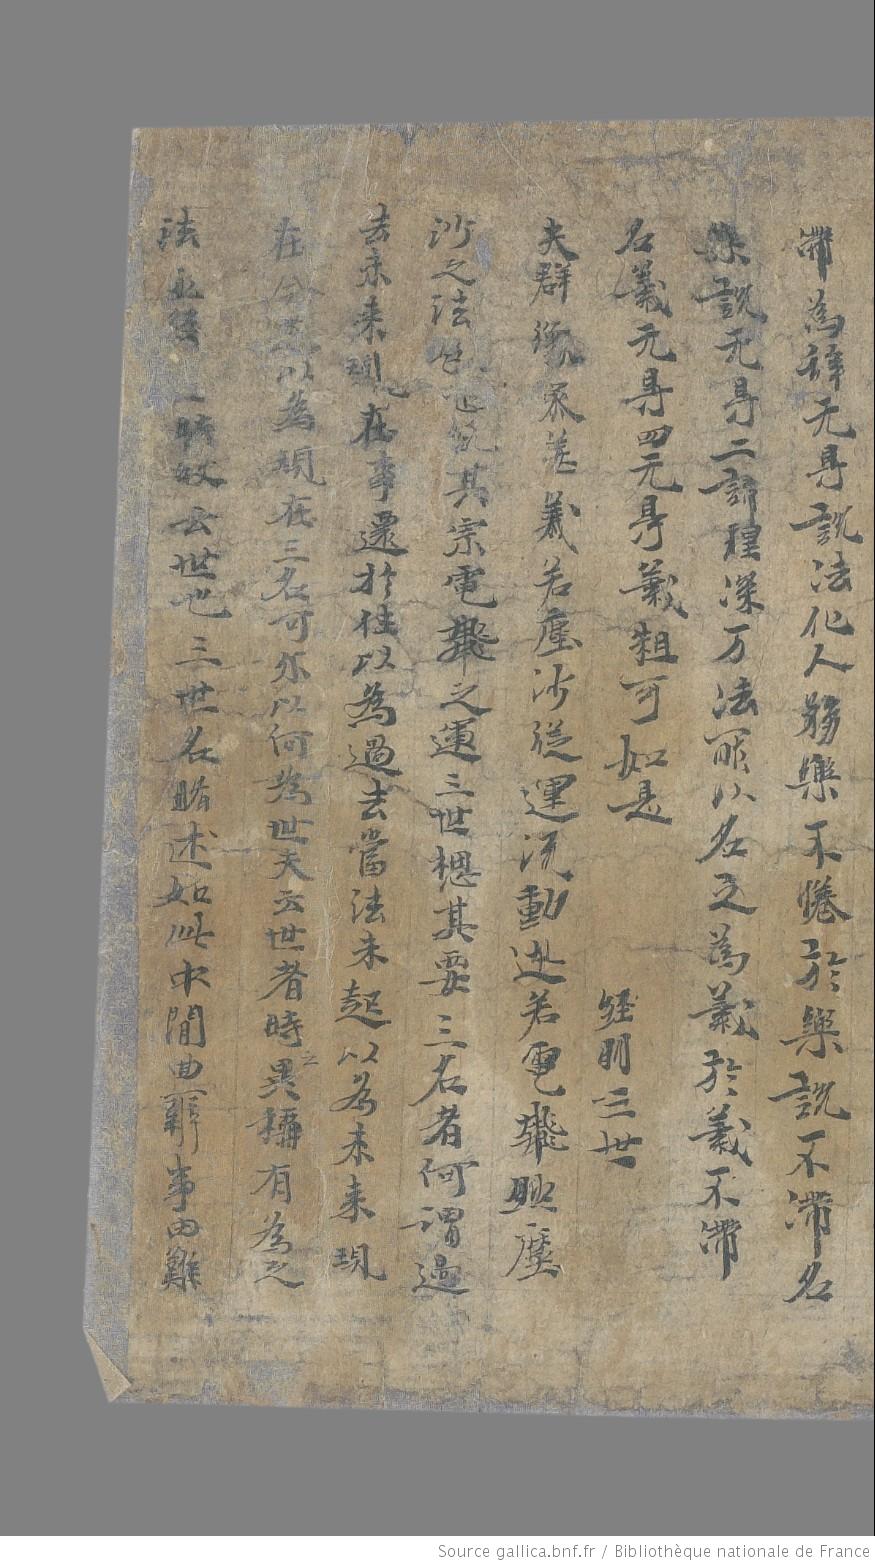 滯為辞无㝵說法化人務樂不惓於樂說不滯名
樂說无㝵二諦理深万法 以名之為義於義不滯
名義无㝵四无㝵義粗可如是
經明三世
夫群 衆 義若塵沙 運流動 若電 塵
沙之法 其宗電 之運三世揔其要三名者何謂過
去未来現在事遷於往以為過去當法未起以為未来現
在今 以為現在三名可尓以何為世夫云世者時之異稱有為之
法 一時故云世也三世名略述如此中間曲辭事由難
Source gallica.bnf.fr / Bibliothèque nationale de France